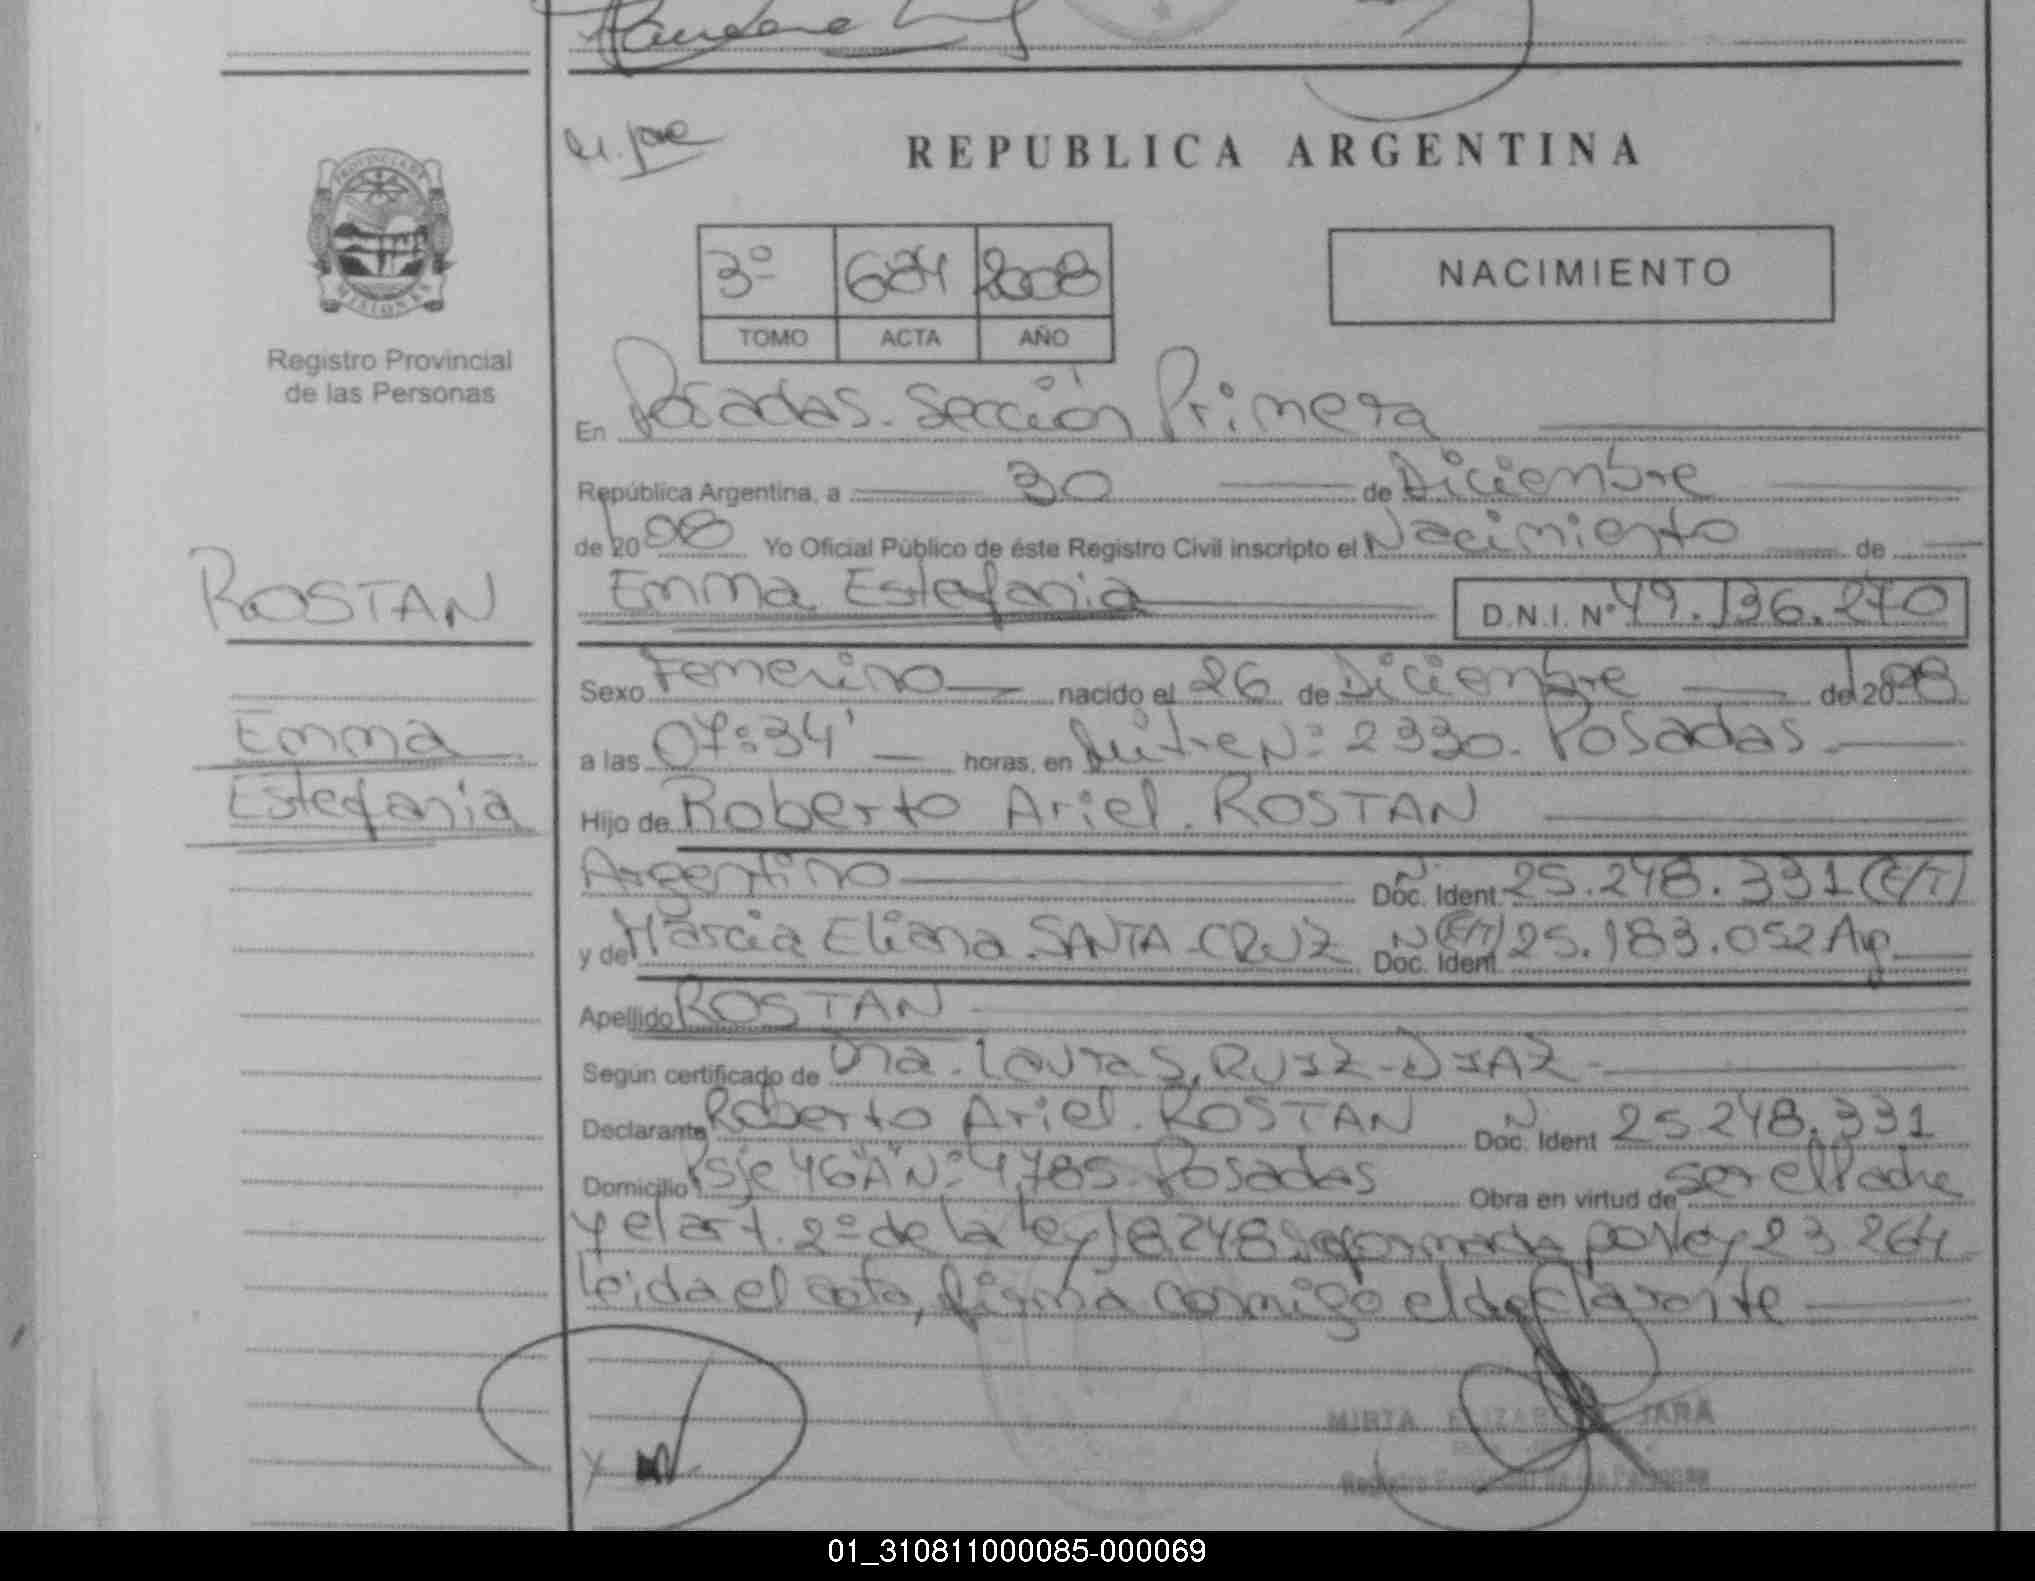 REPUBLICA ARGENTINA
PROVINCIA DE
MISIONES
3º 684 2008
TOMO ACTA AÑO
NACIMIENTO
Registro Provincial
de las Personas
En Posadas. Sección Primera
República Argentina, a 30 de Diciembre
de 2008 Yo Oficial Público de éste Registro Civil inscripto el Nacimiento de
ROSTAN
Emma Estefania D.N.I. Nº 49.136.270
Sexo Femenino nacido el 26 de Diciembre de 2008
Emma
a las 07:34' horas, en Mitre Nº 2330. Posadas
Estefania
Hijo de Roberto Ariel. ROSTAN
Argentino Doc. Ident. N 25.248.331 (E/T)
y de Marcia Eliana. SANTA CRUZ Doc. Ident. N (E/T) 25.183.052 Arg.
Apellido ROSTAN
Según certificado de Dra. Laura S. RUIZ-DIAZ
Declarante Roberto Ariel. ROSTAN Doc. Ident N 25248.331
Domicilio Psje 46"A" Nº 4785. Posadas Obra en virtud de ser el Padre
y el art. 2º de la ley 18.248 reformada por ley 23264
leida el acta, firma conmigo el declarante
MIRTA ELIZABETH JARA
Registro Provincial de las Personas
01_310811000085-000069